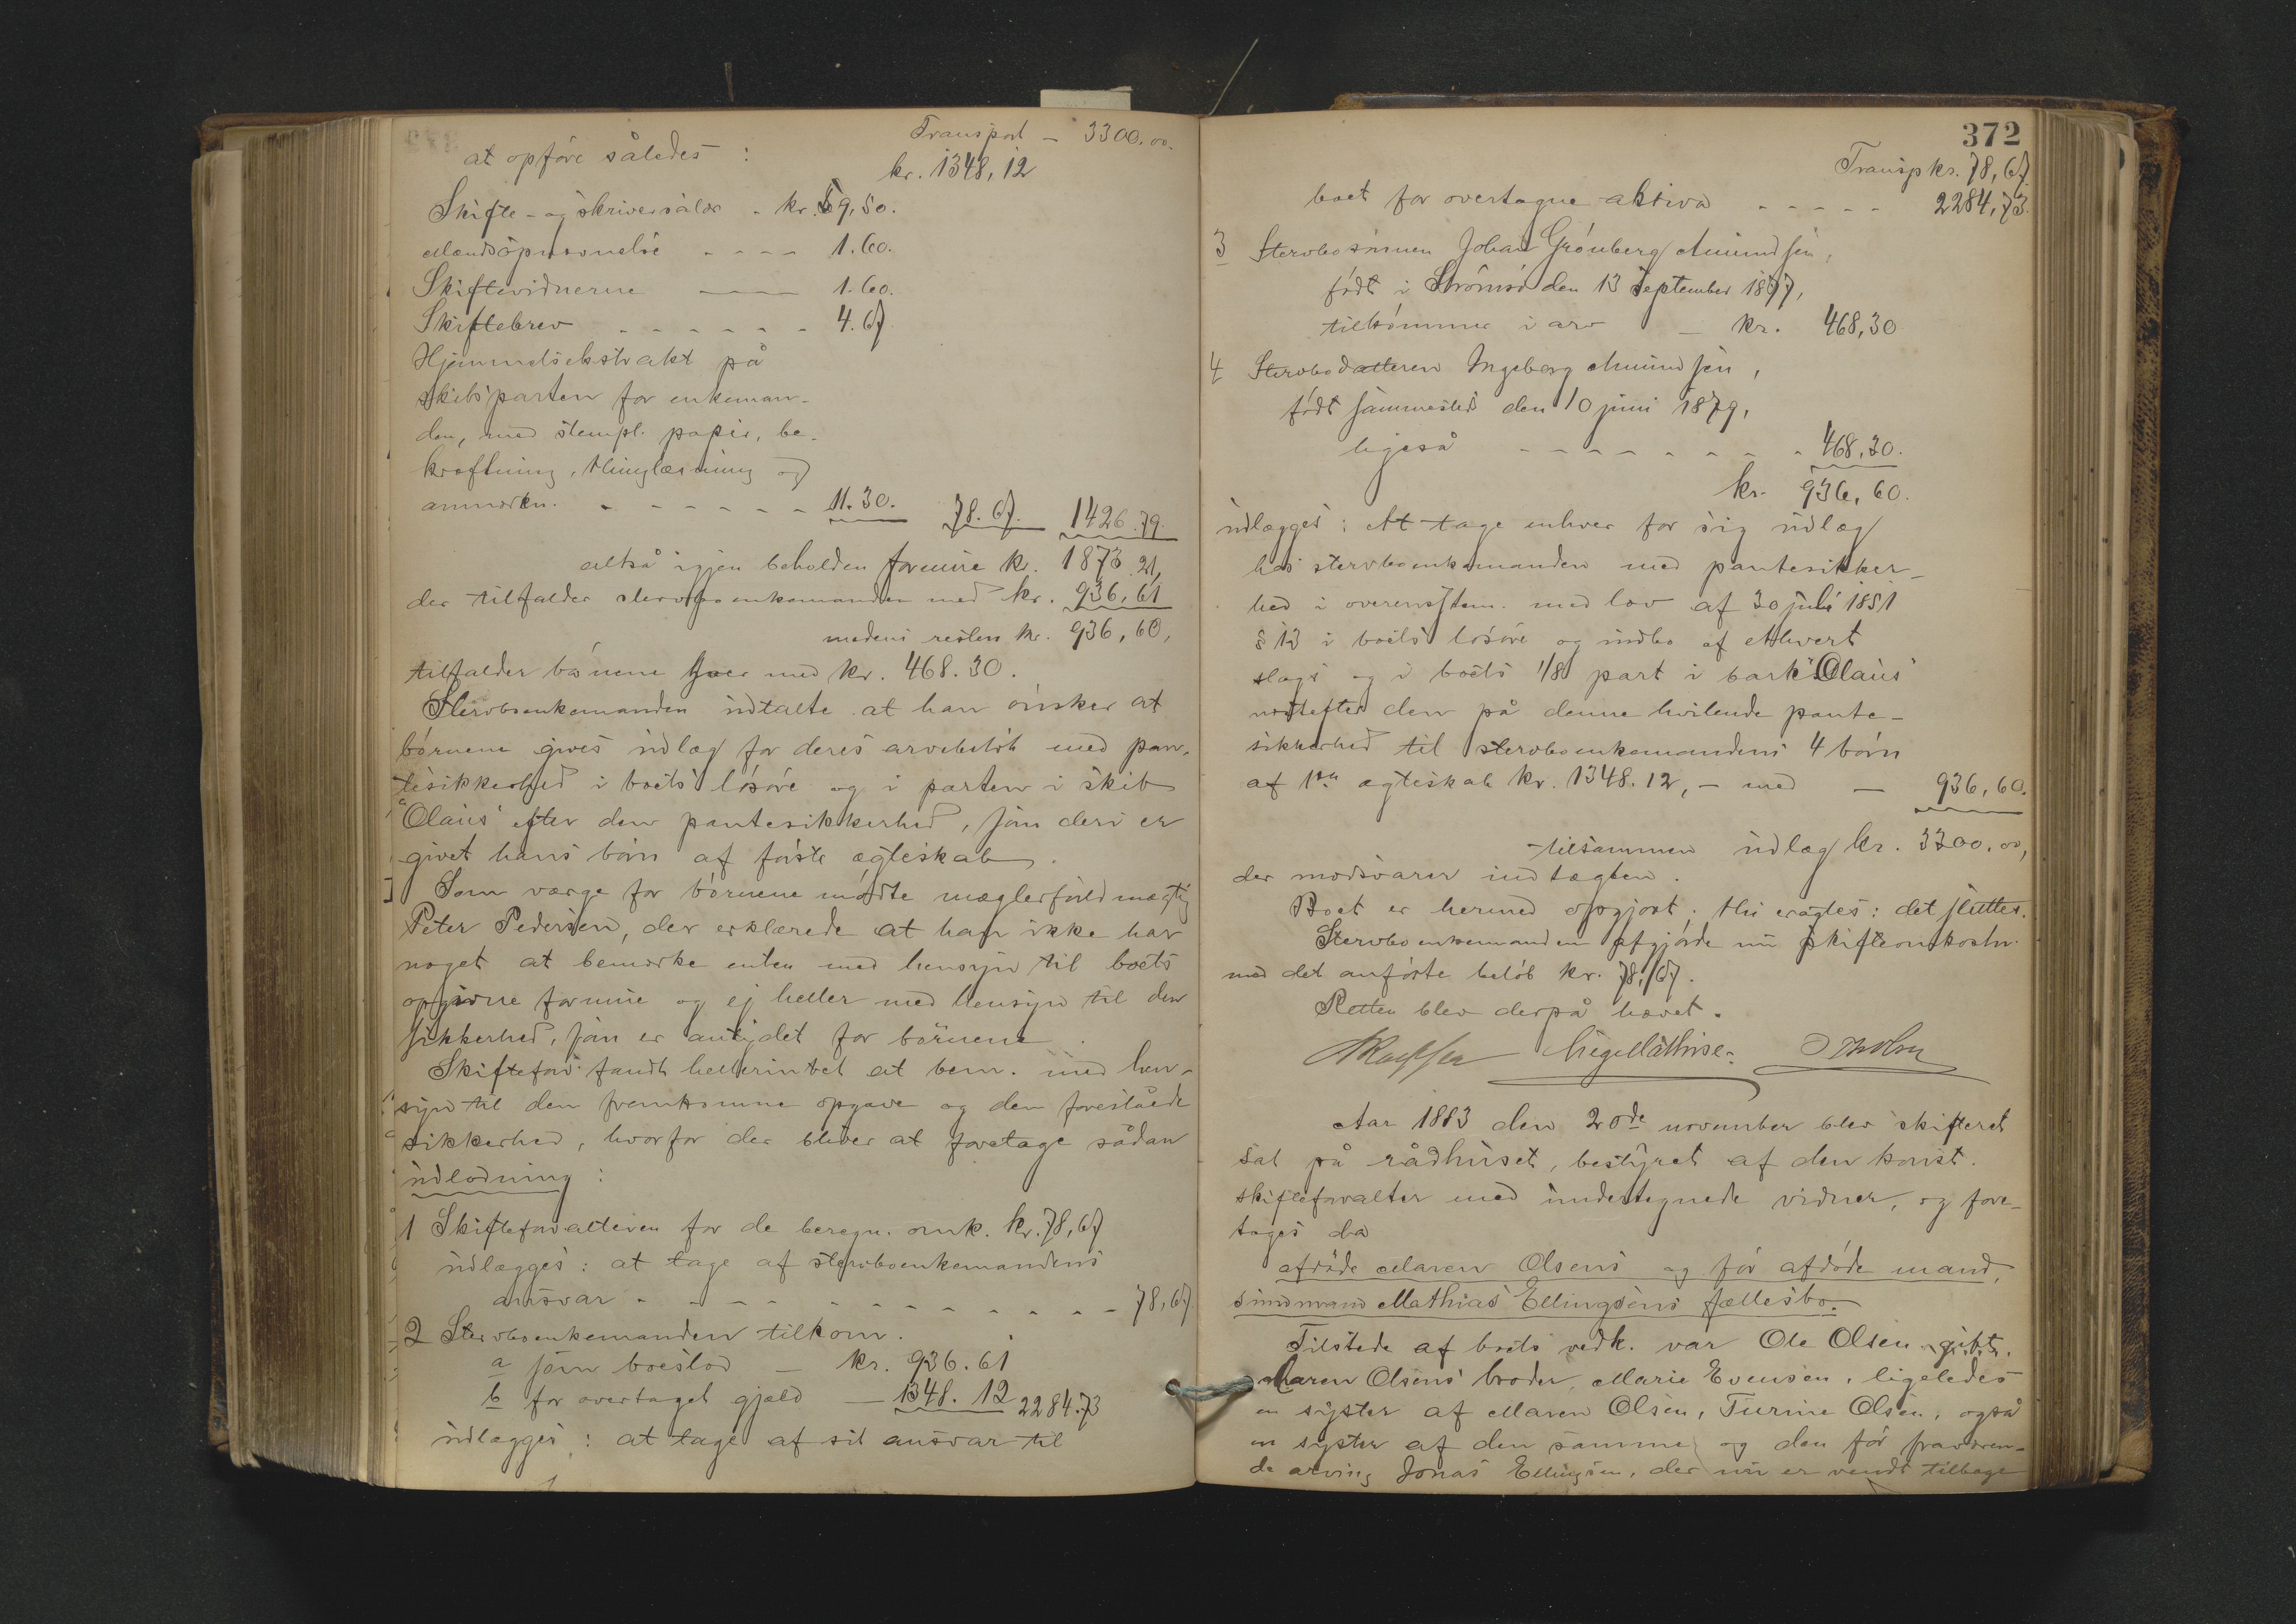 Transport - 3300.00.
at opføre således: kr. 1348,12
Skifte- og skriversalær - kr. 59,50.
Mandsopnævnelse - - - - 1.60.
Skiftevidnerne — 1.60.
Skiftebrev - - - - - - 4.67
Hjemmelsekstrakt på
skibsparten for enkeman-
den, med stempl. papir, be-
kræftning, thinglæsning og
anmærkn. - - - - - - 11.30. 78.67. 1426.79.
altså igjen beholden formue kr. 1873.21,
der tilfalder stervboenkemanden med kr. 936,61
medens resten kr. 936,60,
tilfalder børnene hver med kr. 468.30.
Stervboenkemanden udtalte at han ønsker at
børnene gives udlæg for deres arvebeløb med pan-
tesikkerhed i boets løsøre og i parten i skib
"Olaus" efter den pantesikkerhed, som deri er
givet hans børn af første ægteskab.
Som værge for børnene mødte mæglerfuldmægtig
Peter Pedersen, der erklærede at han ikke har
noget at bemærke enten med hensyn til boets
opgivne formue og ej heller med hensyn til den
sikkerhed, som er antydet for børnene.
Skifteforv. fandt heller intet at bem. med hen-
syn til den fremkomne opgave og den foreslåede
sikkerhed, hvorfor der bliver at foretage sådan
udlodning:
1 Skifteforvalteren for de beregn. omk. kr. 78,67
udlægges: at tage af stervboenkemandens
ansvar - - - - - - - - - - - - 78,67
2 Stervboenkemanden tilkom.
a som boeslod — kr. 936.61
b for overtaget gjæld — 1348.12 2284.73
udlægges: at tage af sit ansvar til
372
Transp kr. 78,67
boet for overtagne aktiva - - - - - 2284,73.
3 Stervbosønnen Johan Grönberg Amundsen,
født i Strömsö den 13 september 1877,
tilkommer i arv — kr. 468,30
4 Stervbodatteren Ingeborg Amundsen,
født sammesteds den 10 juni 1879,
ligeså - - - - - - - - 468.30.
kr. 936,60.
udlægges: At tage enhver for sig udlæg
hos stervboenkemanden med pantesikker-
hed i overensstem. med lov af 30 juli 1851
§ 13 i boets løsøre og indbo af ethvert
slags og i boets 1/8 part i bark "Olaus"
næstefter den på denne hvilende pante-
sikkerhed til stervboenkemandens 4 børn
af 1ste ægteskab kr. 1348.12, - med — 936,60.
tilsammen udlæg kr. 3300.00,
der modsvarer indtægten.
Boet er hermed opgjort. Thi eragtes: det sluttes.
Stervboenkemanden afgjorde nu skifteomkostn.
med det anførte beløb kr. 78,67.
Retten blev derpå hævet.
Aar 1883 den 20de november blev skifteret
sat på rådhuset, bestyret af den konst.
skifteforvalter med undertegnede vidner, og fore-
toges da
afdøde Maren Olsens og før afdøde mand,
sømand Mathias Ellingsens fællesbo.
Tilstede af boets vedk. var Ole Olsen, gift,
Maren Olsens broder, Marie Evensen, ligeledes
en syster af Maren Olsen, Turine Olsen, også
en syster af den samme og den før fraværen-
de arving Jonas Ellingsen, der nu er vendt tilbage